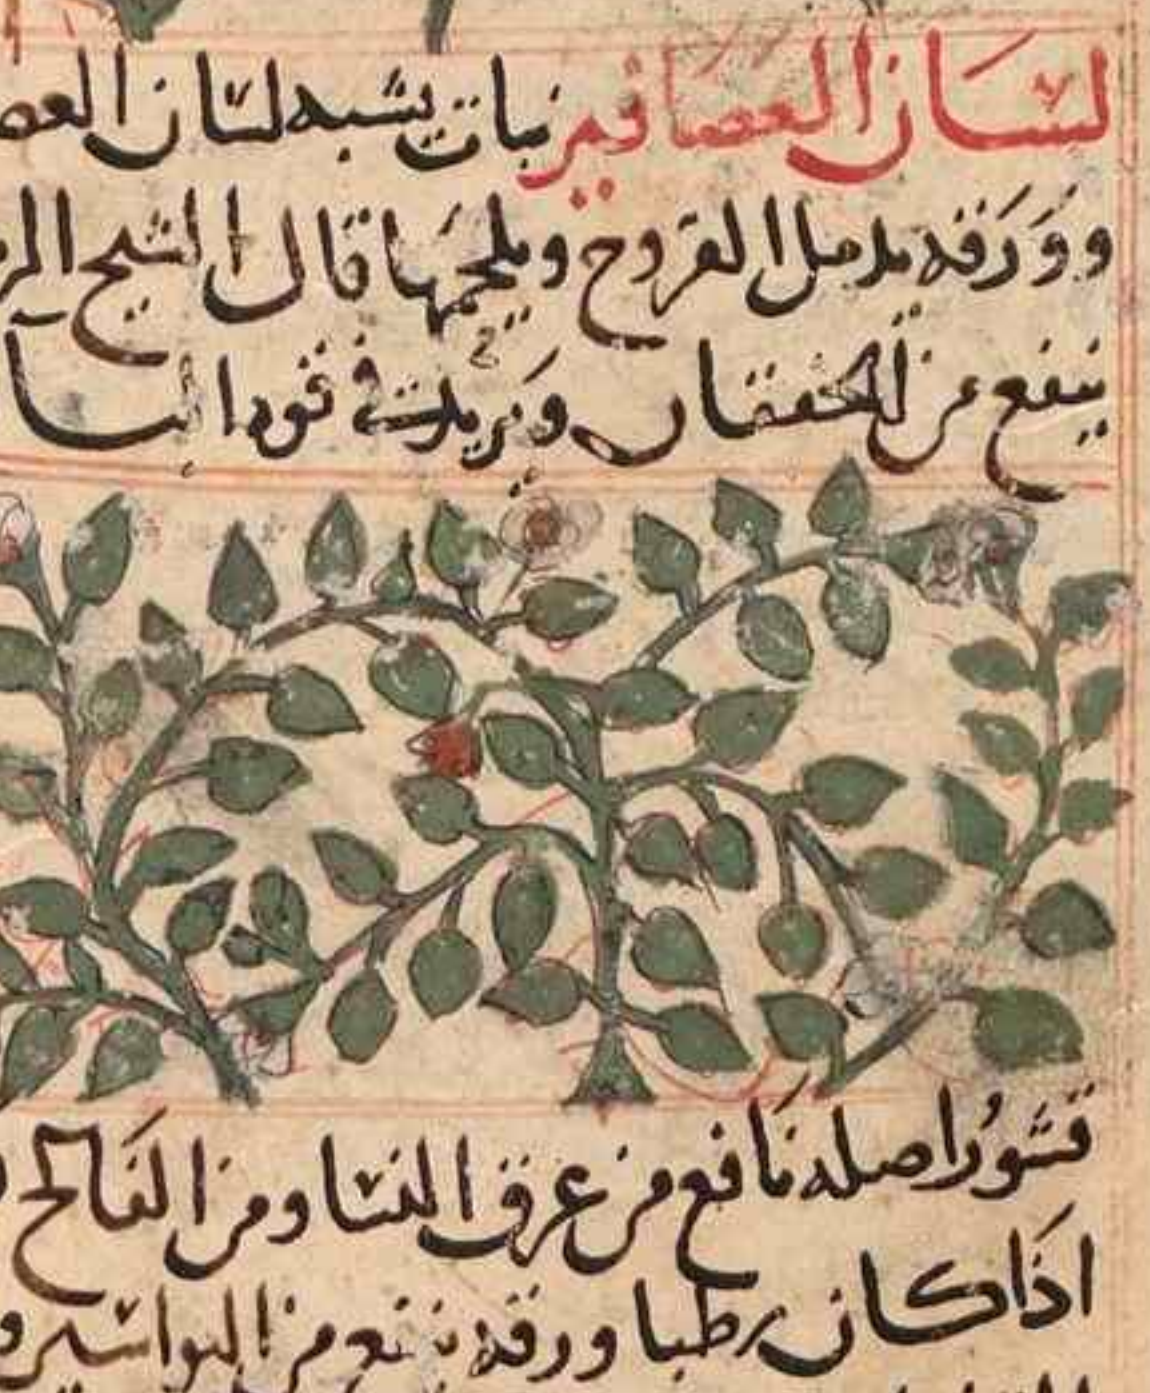 لسان العصافير نبات يشبه لسان العصا
وورقه يدمل القروح ويلحمها قال الشيخ الر
ينفع من الخفقان ويزيد في قوة البا
قشور اصله نافع من عرق النسا ومن الفالج
اذا كان رطبا وورقه ينفع من البواسير و